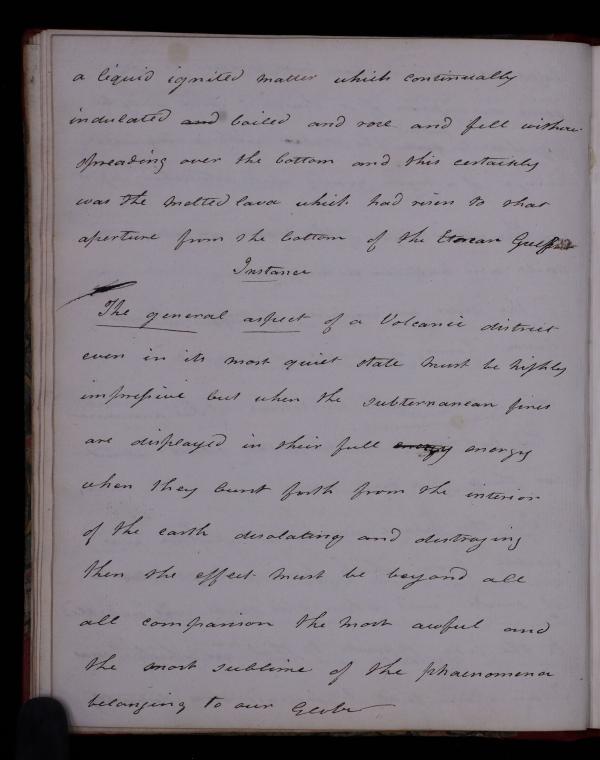 a liquid ignited matter which continually
undulated and boiled and rose and fell without
spreading over the bottom and this certainly
was the melted lava which had risen to that
aperture from the bottom of the Etnean Gulf
Instance
The general aspect of a Volcanic district
even in its most quiet state must be highly
impressive but when the subterranean fires
are displayed in their full energy energy
when they burst forth from the interior
of the earth desolating and destroying
then the effect must be beyond all
all comparison the most awful and
the most sublime of the phaenomena
belonging to our Globe